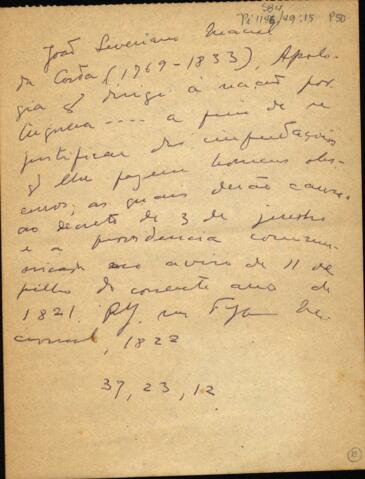 SBH
Pi 1146/49:15 P50
João Severiano Maciel
da Costa (1769-1833), Apolo-
gia q dirige á nação por-
tugueza .... a fim de se
justificar das imputações
q lhe fazem homens obs-
curos, as quais derão causa
ao decreto de 3 de junho
e a providencia commu-
nicada no aviso de 11 de
julho do corrente ano de
1821. RJ na Typ Na-
cional, 1822
37, 23, 12